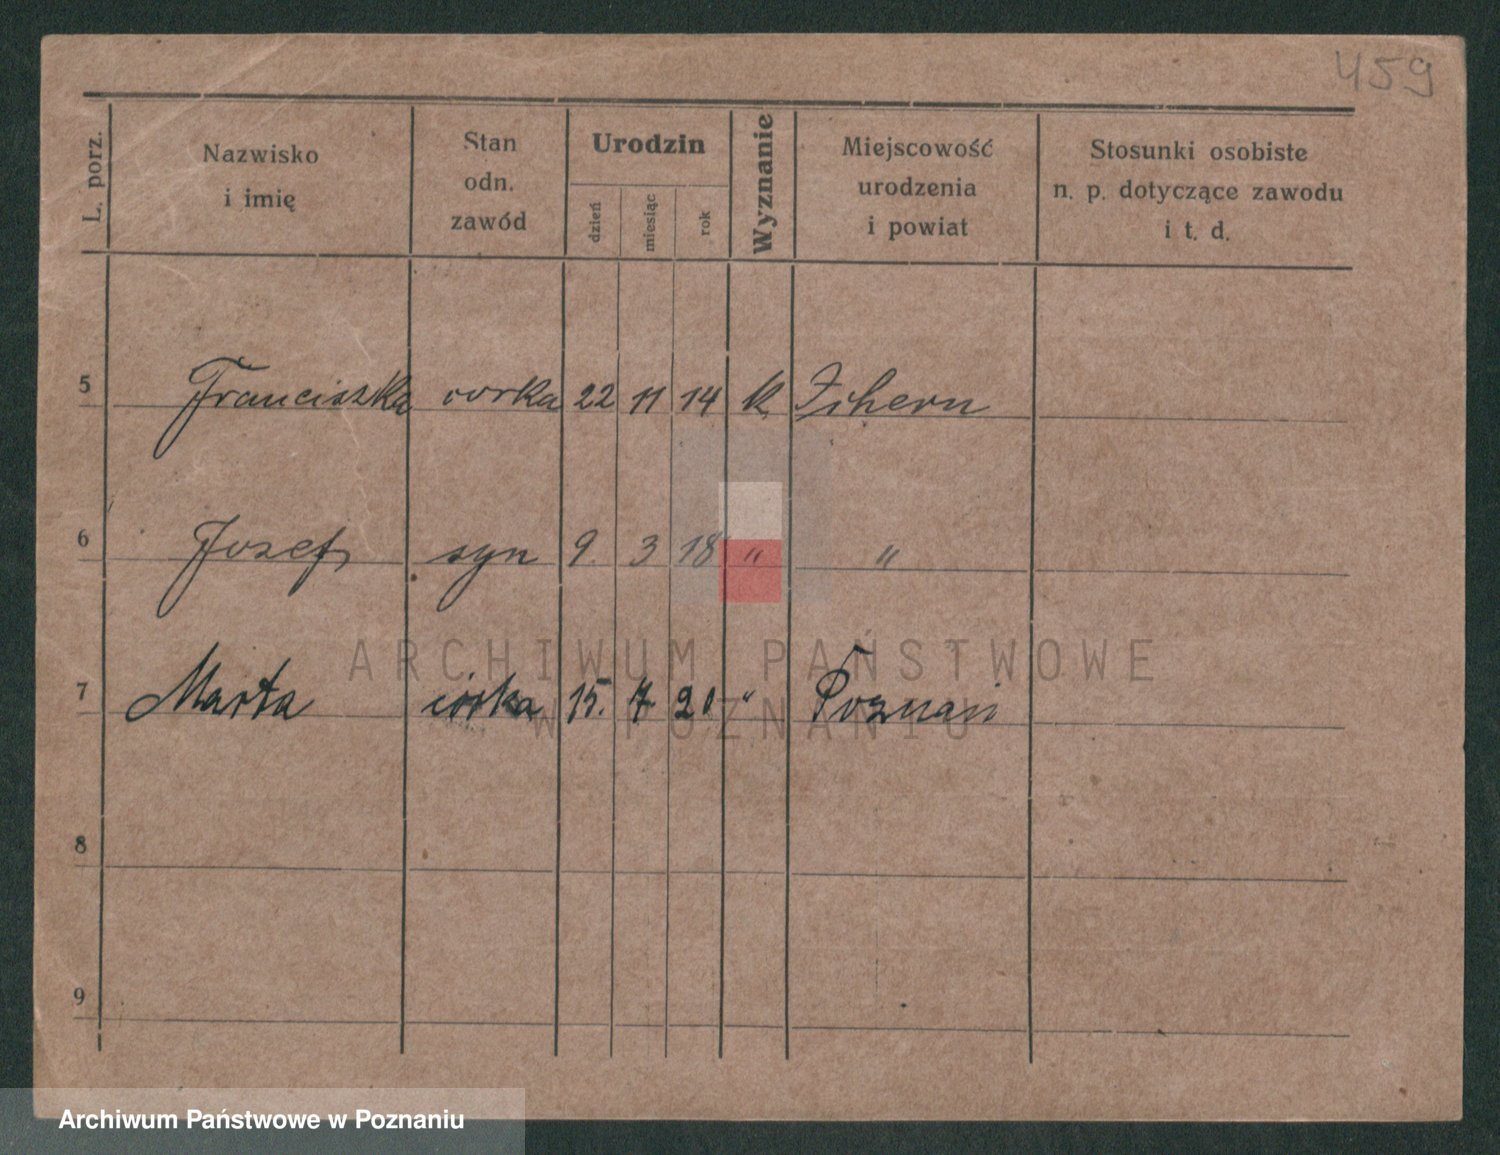 459
L. porz. Nazwisko i imię Stan odn. zawód Urodzin dzień miesiąc rok Wyznanie Miejscowość urodzenia i powiat Stosunki osobiste n. p. dotyczące zawodu i t. d.
5 Franciszka corka 22 11 14 k
6 Jozef syn 9. 3 18 " "
7 Marta córka 15. 7 20 " Poznań
8
9
ARCHIWUM PAŃSTWOWE
W POZNANIU
Archiwum Państwowe w Poznaniu